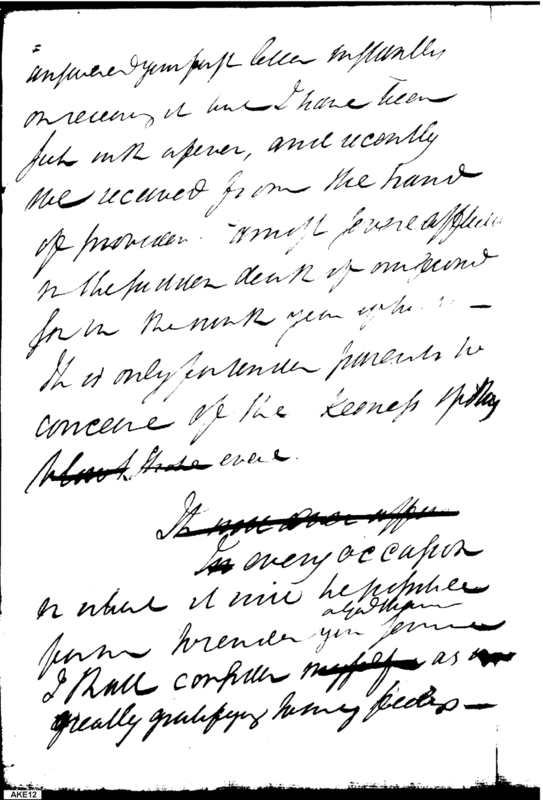 answered your first letter instantly
on receiving it but I have been
sick with a fever, and recently
We received from the hand
of providen a most severe afflic
in the sudden death of our second
son in the ninth year of his
It is only for tender parents to
conceive of the keeness of this
Stroke even.
It
In every occasion
in which it will be possible
for me to render you service
I shall consider myself as
greatly gratifying to my feelings
AKE12